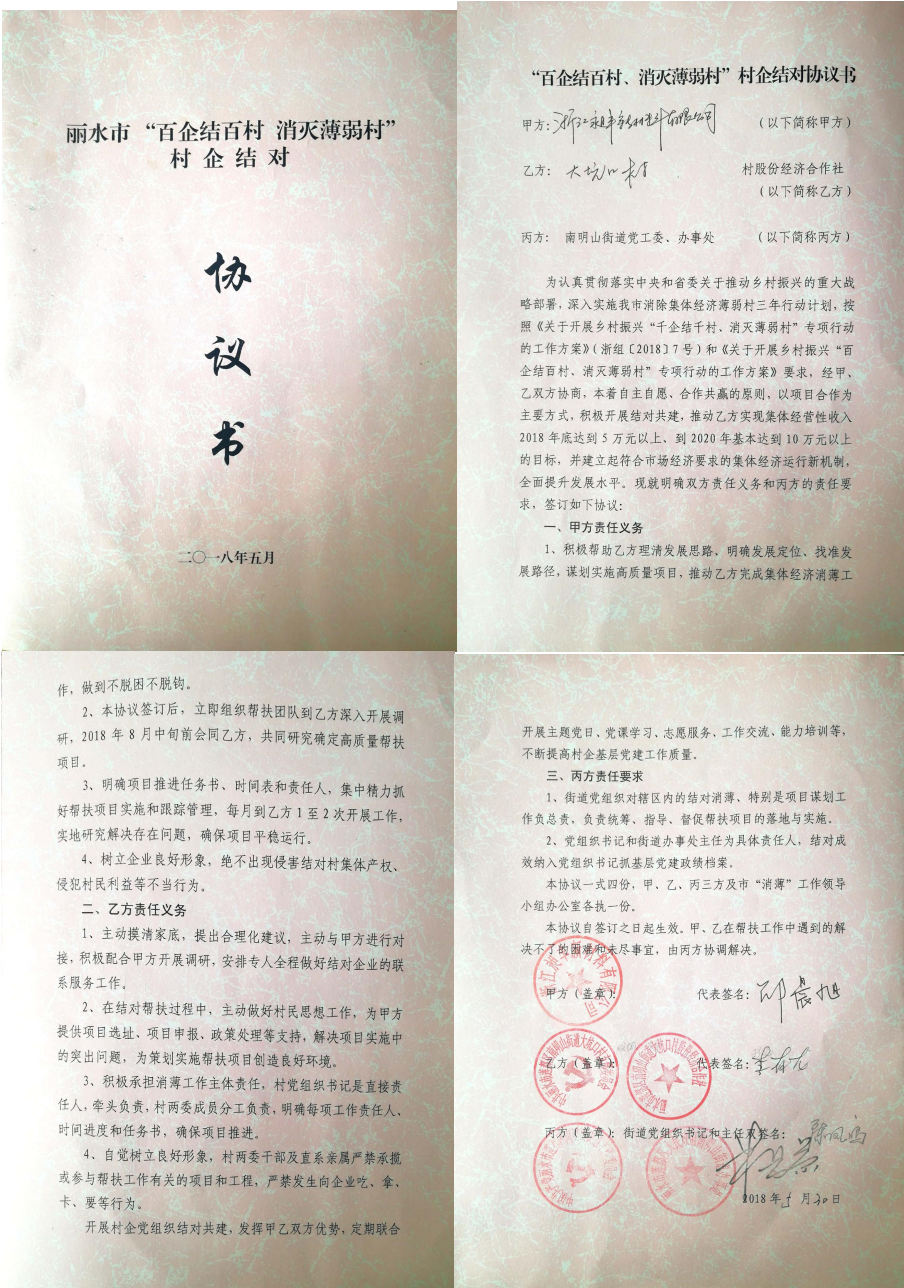 丽水市 “百企结百村 消灭薄弱村”
村企结对
协
议
书
二〇一八年五月
“百企结百村、消灭薄弱村”村企结对协议书
甲方：浙江 有限公司 （以下简称甲方）
乙方： 大坑口村 村股份经济合作社
（以下简称乙方）
丙方： 南明山街道党工委、办事处 （以下简称丙方）
为认真贯彻落实中央和省委关于推动乡村振兴的重大战
略部署，深入实施我市消除集体经济薄弱村三年行动计划，按
照《关于开展乡村振兴“千企结千村、消灭薄弱村”专项行动
的工作方案》（浙组〔2018〕7号）和《关于开展乡村振兴“百
企结百村、消灭薄弱村”专项行动的工作方案》要求，经甲、
乙双方协商，本着自主自愿、合作共赢的原则，以项目合作为
主要方式，积极开展结对共建，推动乙方实现集体经营性收入
2018年底达到5万元以上、到2020年基本达到10万元以上
的目标，并建立起符合市场经济要求的集体经济运行新机制，
全面提升发展水平。现就明确双方责任义务和丙方的责任要
求，签订如下协议：
一、甲方责任义务
1、积极帮助乙方理清发展思路、明确发展定位、找准发
展路径，谋划实施高质量项目，推动乙方完成集体经济消薄工
作，做到不脱困不脱钩。
2、本协议签订后，立即组织帮扶团队到乙方深入开展调
研，2018年8月中旬前会同乙方，共同研究确定高质量帮扶
项目。
3、明确项目推进任务书、时间表和责任人，集中精力抓
好帮扶项目实施和跟踪管理，每月到乙方1至2次开展工作，
实地研究解决存在问题，确保项目平稳运行。
4、树立企业良好形象，绝不出现侵害结对村集体产权、
侵犯村民利益等不当行为。
二、乙方责任义务
1、主动摸清家底，提出合理化建议，主动与甲方进行对
接，积极配合甲方开展调研，安排专人全程做好结对企业的联
系服务工作。
2、在结对帮扶过程中，主动做好村民思想工作，为甲方
提供项目选址、项目申报、政策处理等支持，解决项目实施中
的突出问题，为策划实施帮扶项目创造良好环境。
3、积极承担消薄工作主体责任，村党组织书记是直接责
任人，牵头负责，村两委成员分工负责，明确每项工作责任人、
时间进度和任务书，确保项目推进。
4、自觉树立良好形象，村两委干部及直系亲属严禁承揽
或参与帮扶工作有关的项目和工程，严禁发生向企业吃、拿、
卡、要等行为。
开展村企党组织结对共建，发挥甲乙双方优势，定期联合
开展主题党日、党课学习、志愿服务、工作交流、能力培训等，
不断提高村企基层党建工作质量。
三、丙方责任要求
1、街道党组织对辖区内的结对消薄、特别是项目谋划工
作负总责、负责统筹、指导、督促帮扶项目的落地与实施。
2、党组织书记和街道办事处主任为具体责任人，结对成
效纳入党组织书记抓基层党建政绩档案。
本协议一式四份，甲、乙、丙三方及市“消薄”工作领导
小组办公室各执一份。
本协议自签订之日起生效。甲、乙在帮扶工作中遇到的解
决不了的困难和未尽事宜，由丙方协调解决。
甲方（盖章）： 代表签名：
乙方（盖章）： 代表签名：
丙方（盖章）：街道党组织书记和主任双签名：
2018年5月30日